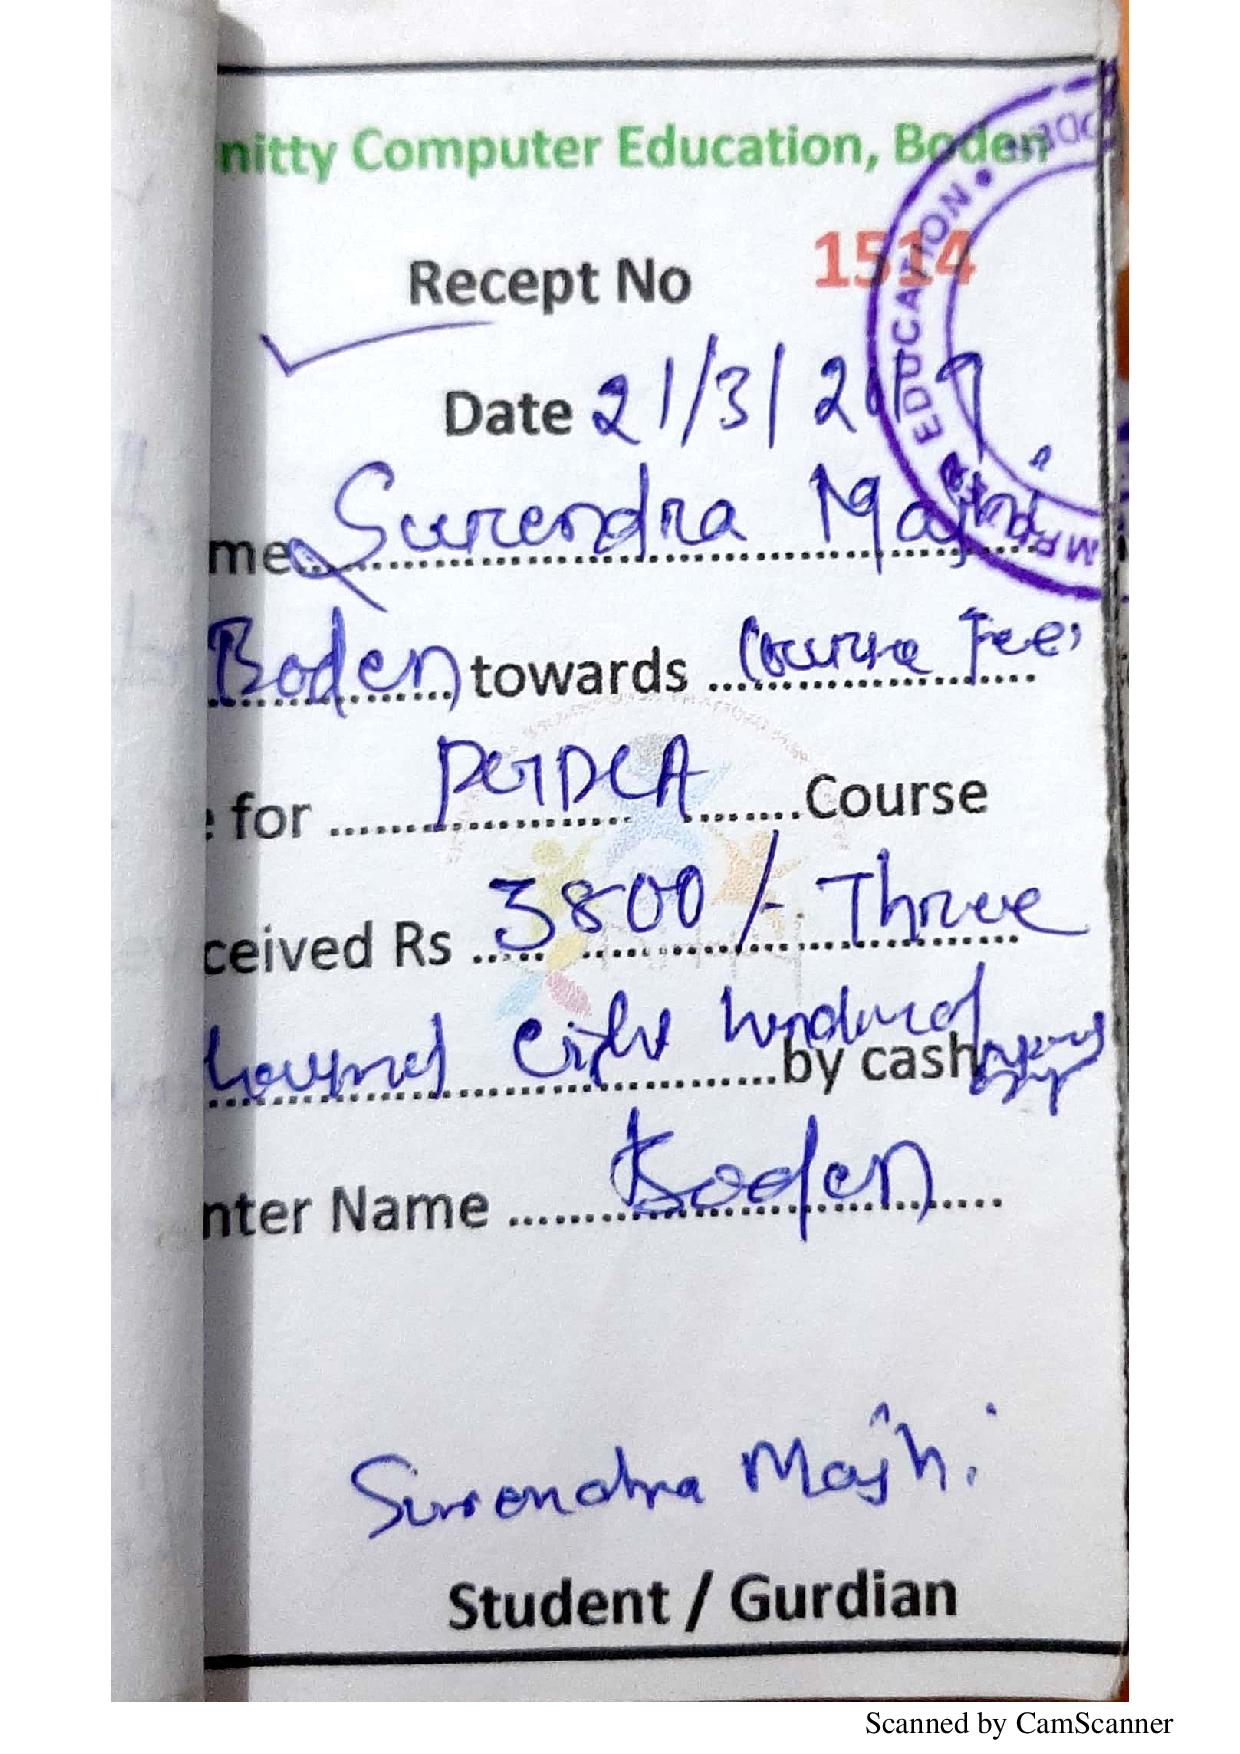 nitty Computer Education, Boden
Recept No 1514
Date 21/3/2019
me Surendra Majhi
Boden towards Course Fees
e for PGDCA Course
ceived Rs 3800/- Three
housand Eight hundred by cash
nter Name Boden
Surendra Majhi
Student / Gurdian
EDUCATION
Scanned by CamScanner